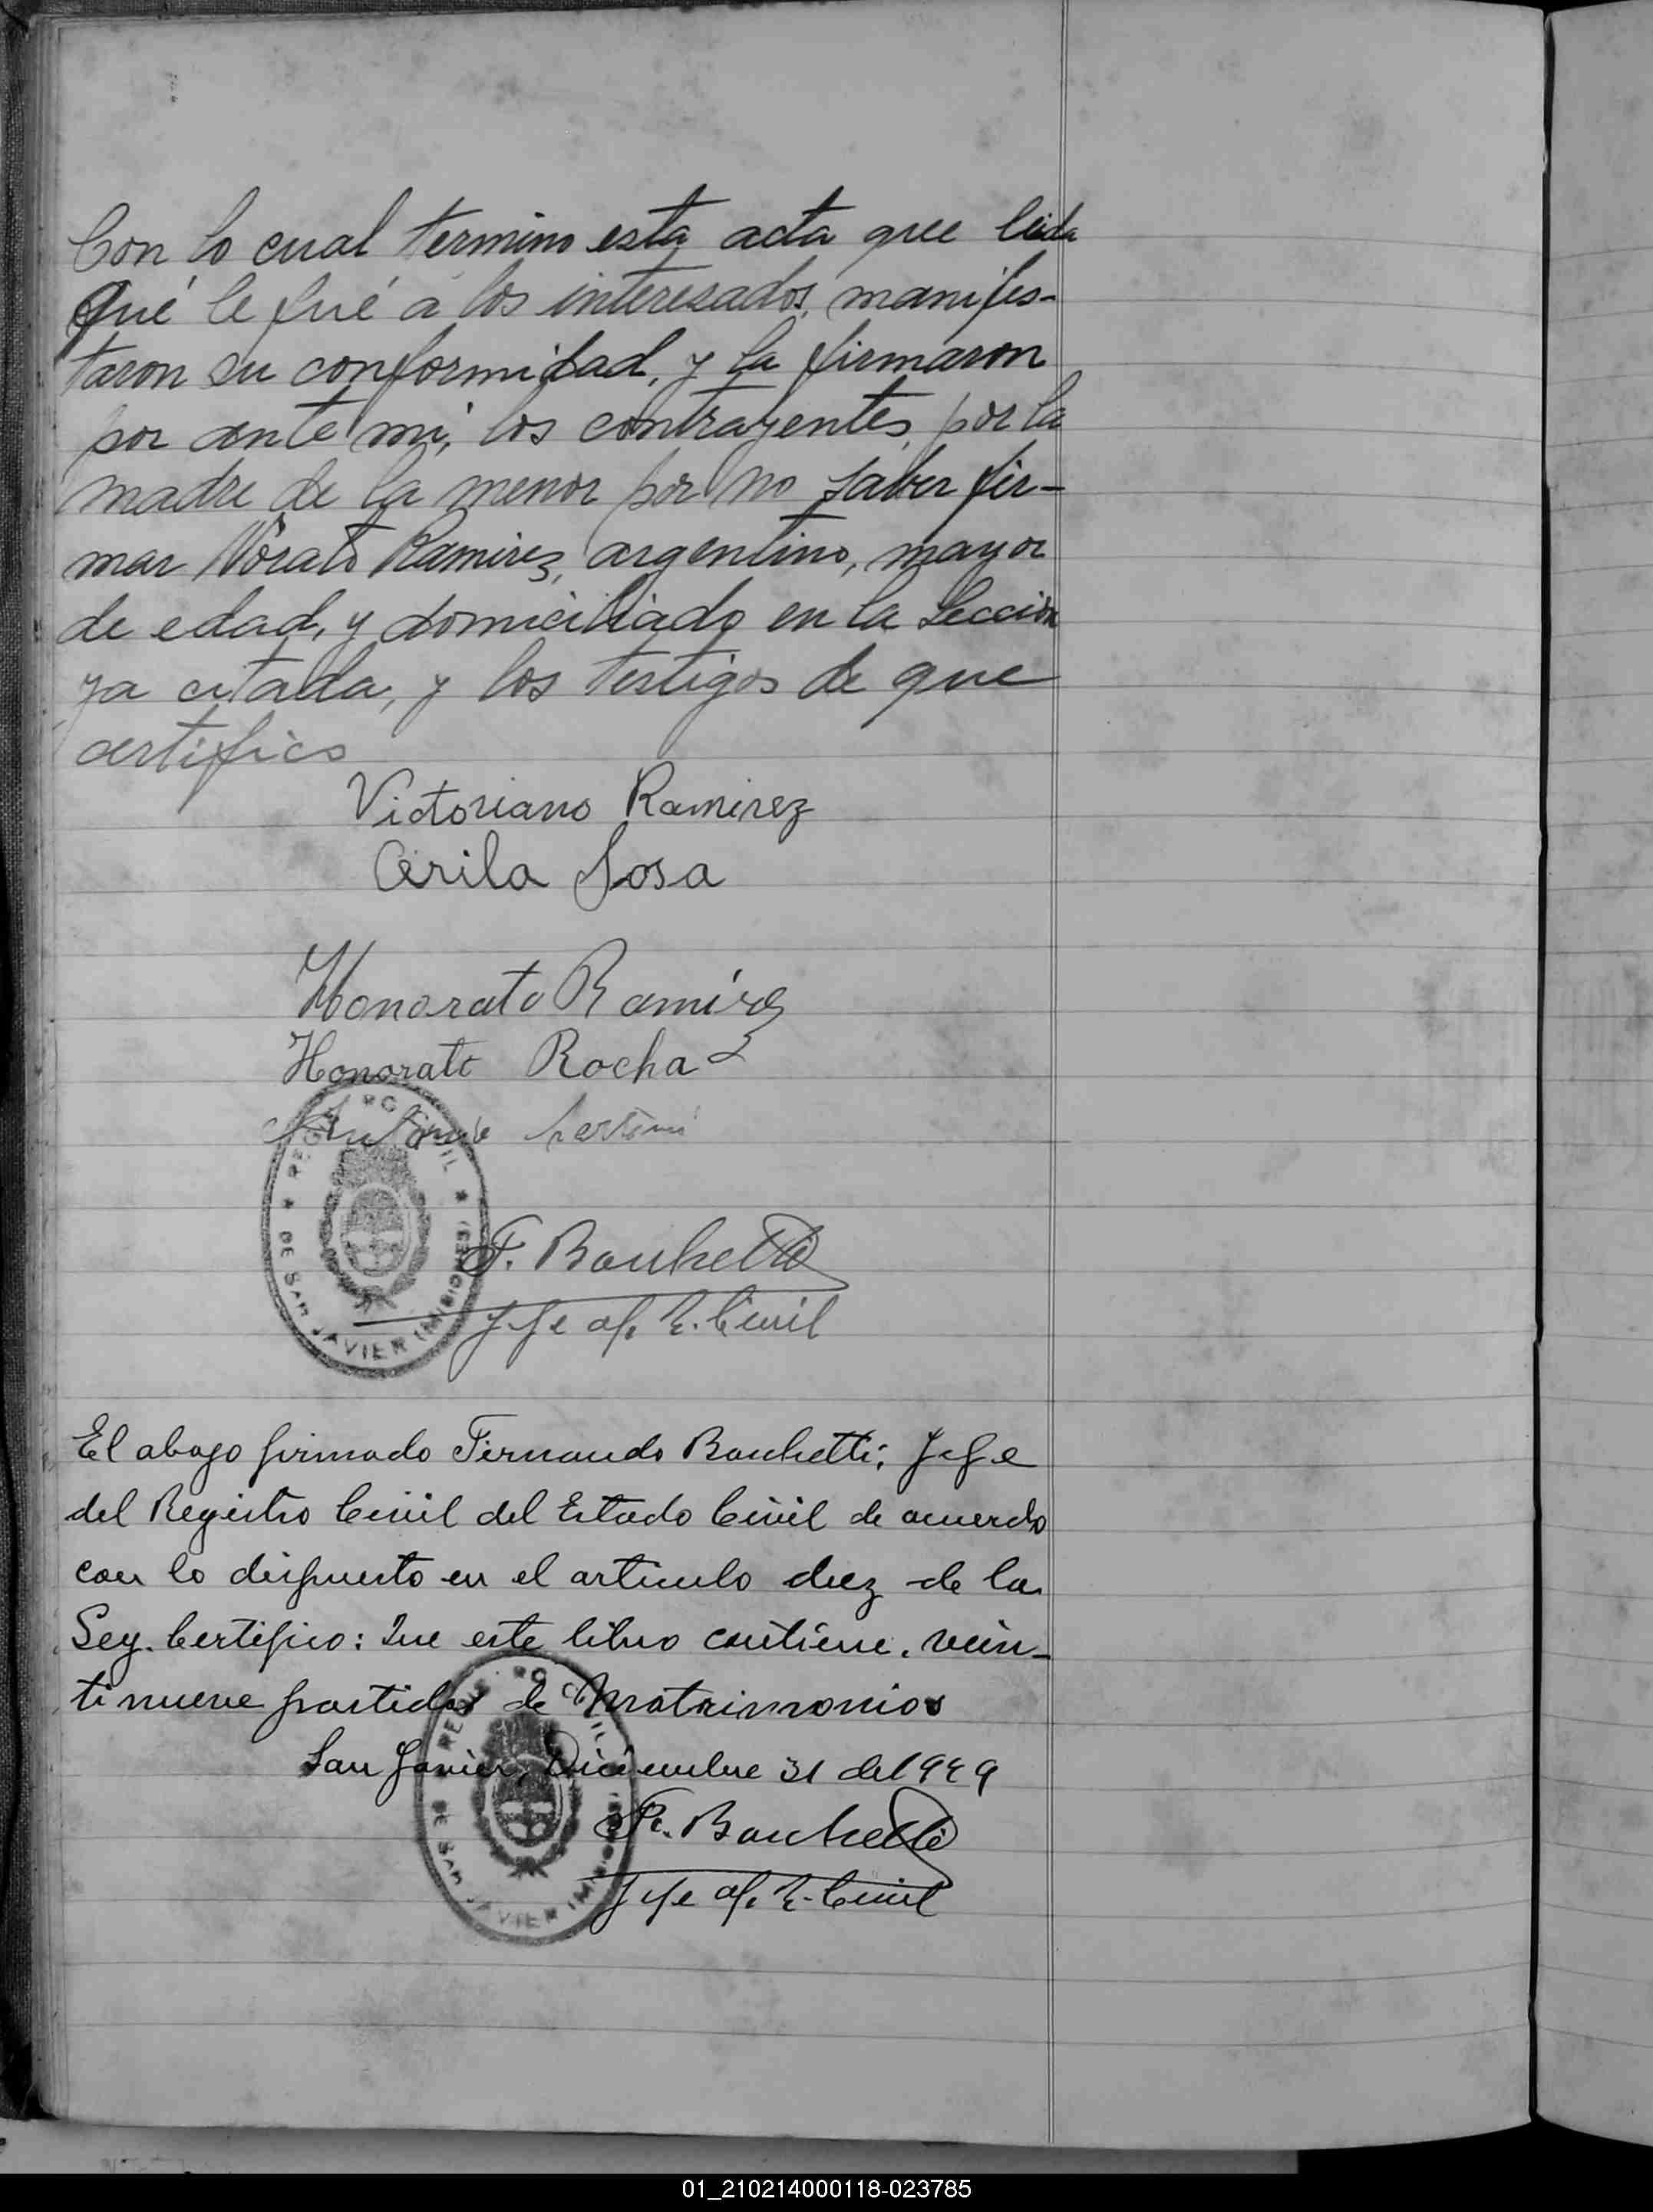 Con lo cual termino esta acta que leida
qué le fué a los interesados, manifes-
taron su conformidad, y la firmaron
por ante mi, los contrayentes, por la
madre de la menor por no saber fir-
mar Norato Ramirez, argentino, mayor
de edad, y domiciliado en la Sección
ya citada, y los testigos de que
certifico
Victoriano Ramirez
Cirila Sosa
Honorato Ramirez
Honorato Rocha
REGISTRO CIVIL
DE SAN JAVIER (MISIONES)
F. Banchetti
Jefe of. R. Civil
El abajo firmado Fernando Banchetti; Jefe
del Registro Civil del Estado Civil de acuerdo
con lo dispuesto en el articulo diez de la
Ley. Certifico: Que este libro contiene. vein-
tinueve partidas de Matrimonios
San Javier, Diciembre 31 de 1949
REGISTRO CIVIL
DE SAN JAVIER (MISIONES)
F. Banchetti
Jefe of. R. Civil
01_210214000118-023785